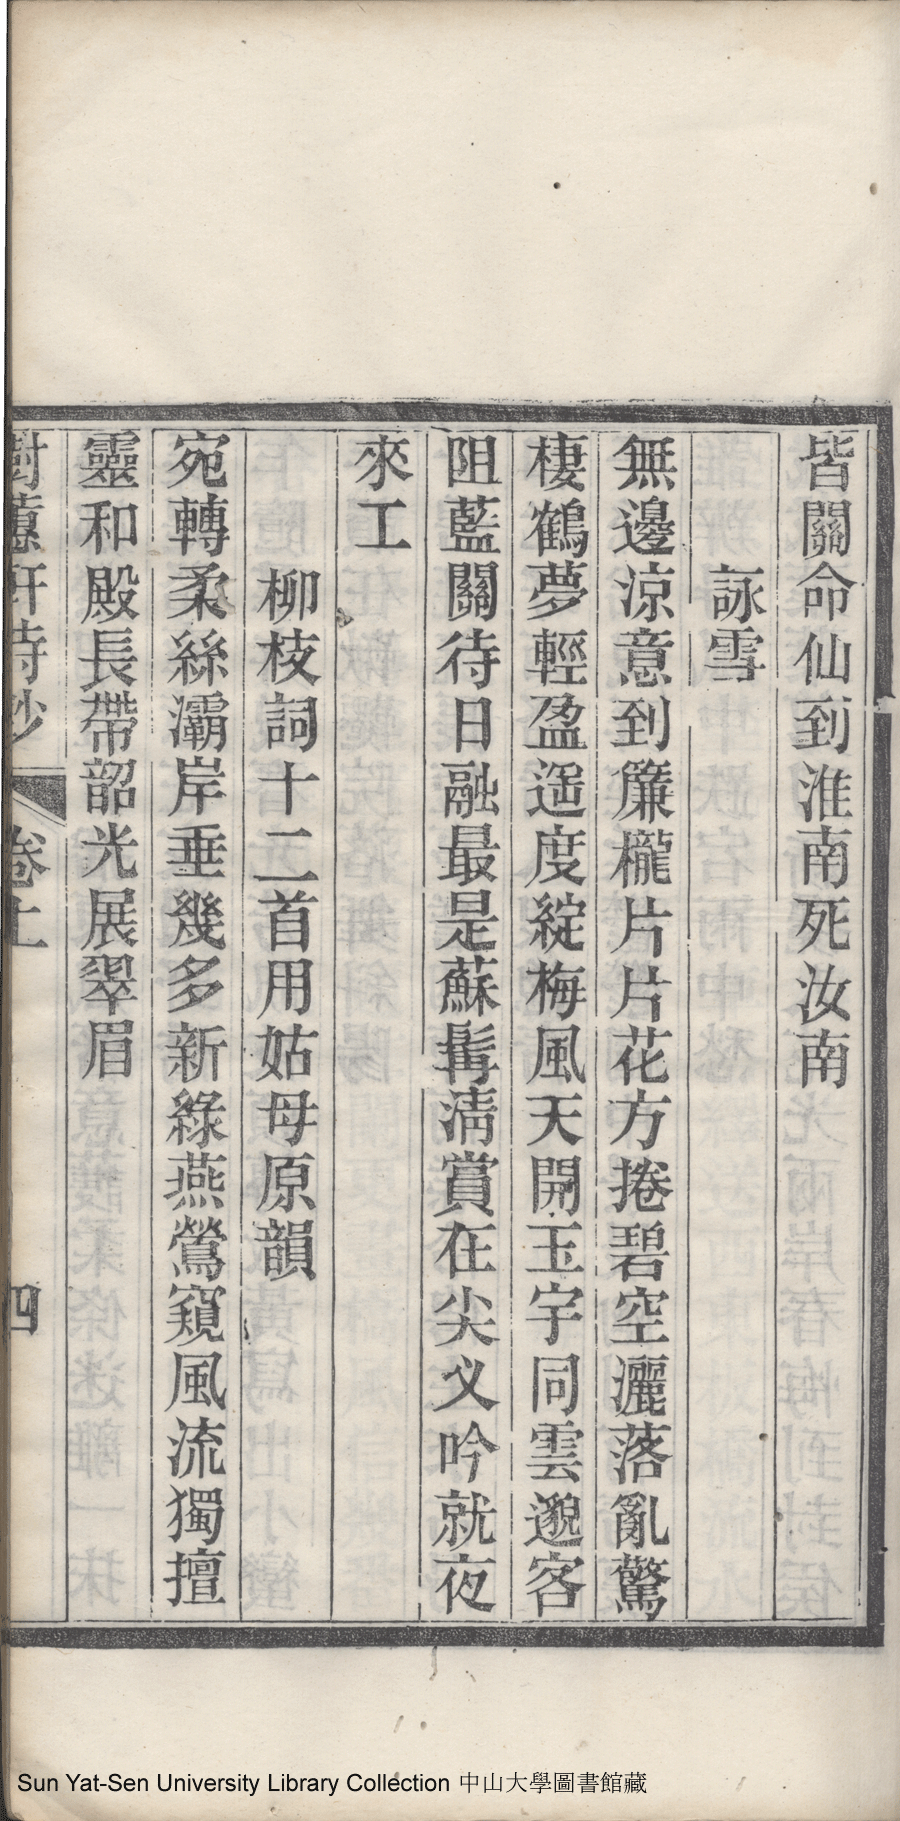 皆關命仙到淮南死汝南
詠雪
無邊涼意到簾櫳片片花方捲碧空灑落亂驚
棲鶴夢輕盈遥度綻梅風天開玉宇同雲邈客
阻藍關待日融最是蘇髯清賞在尖义吟就夜
來工
柳枝詞十二首用姑母原韻
宛轉柔絲灞岸垂幾多新綠燕鶯窺風流獨擅
靈和殿長帶韶光展翠眉
樹蕙軒詩鈔 卷上 四
Sun Yat-Sen University Library Collection 中山大學圖書館藏